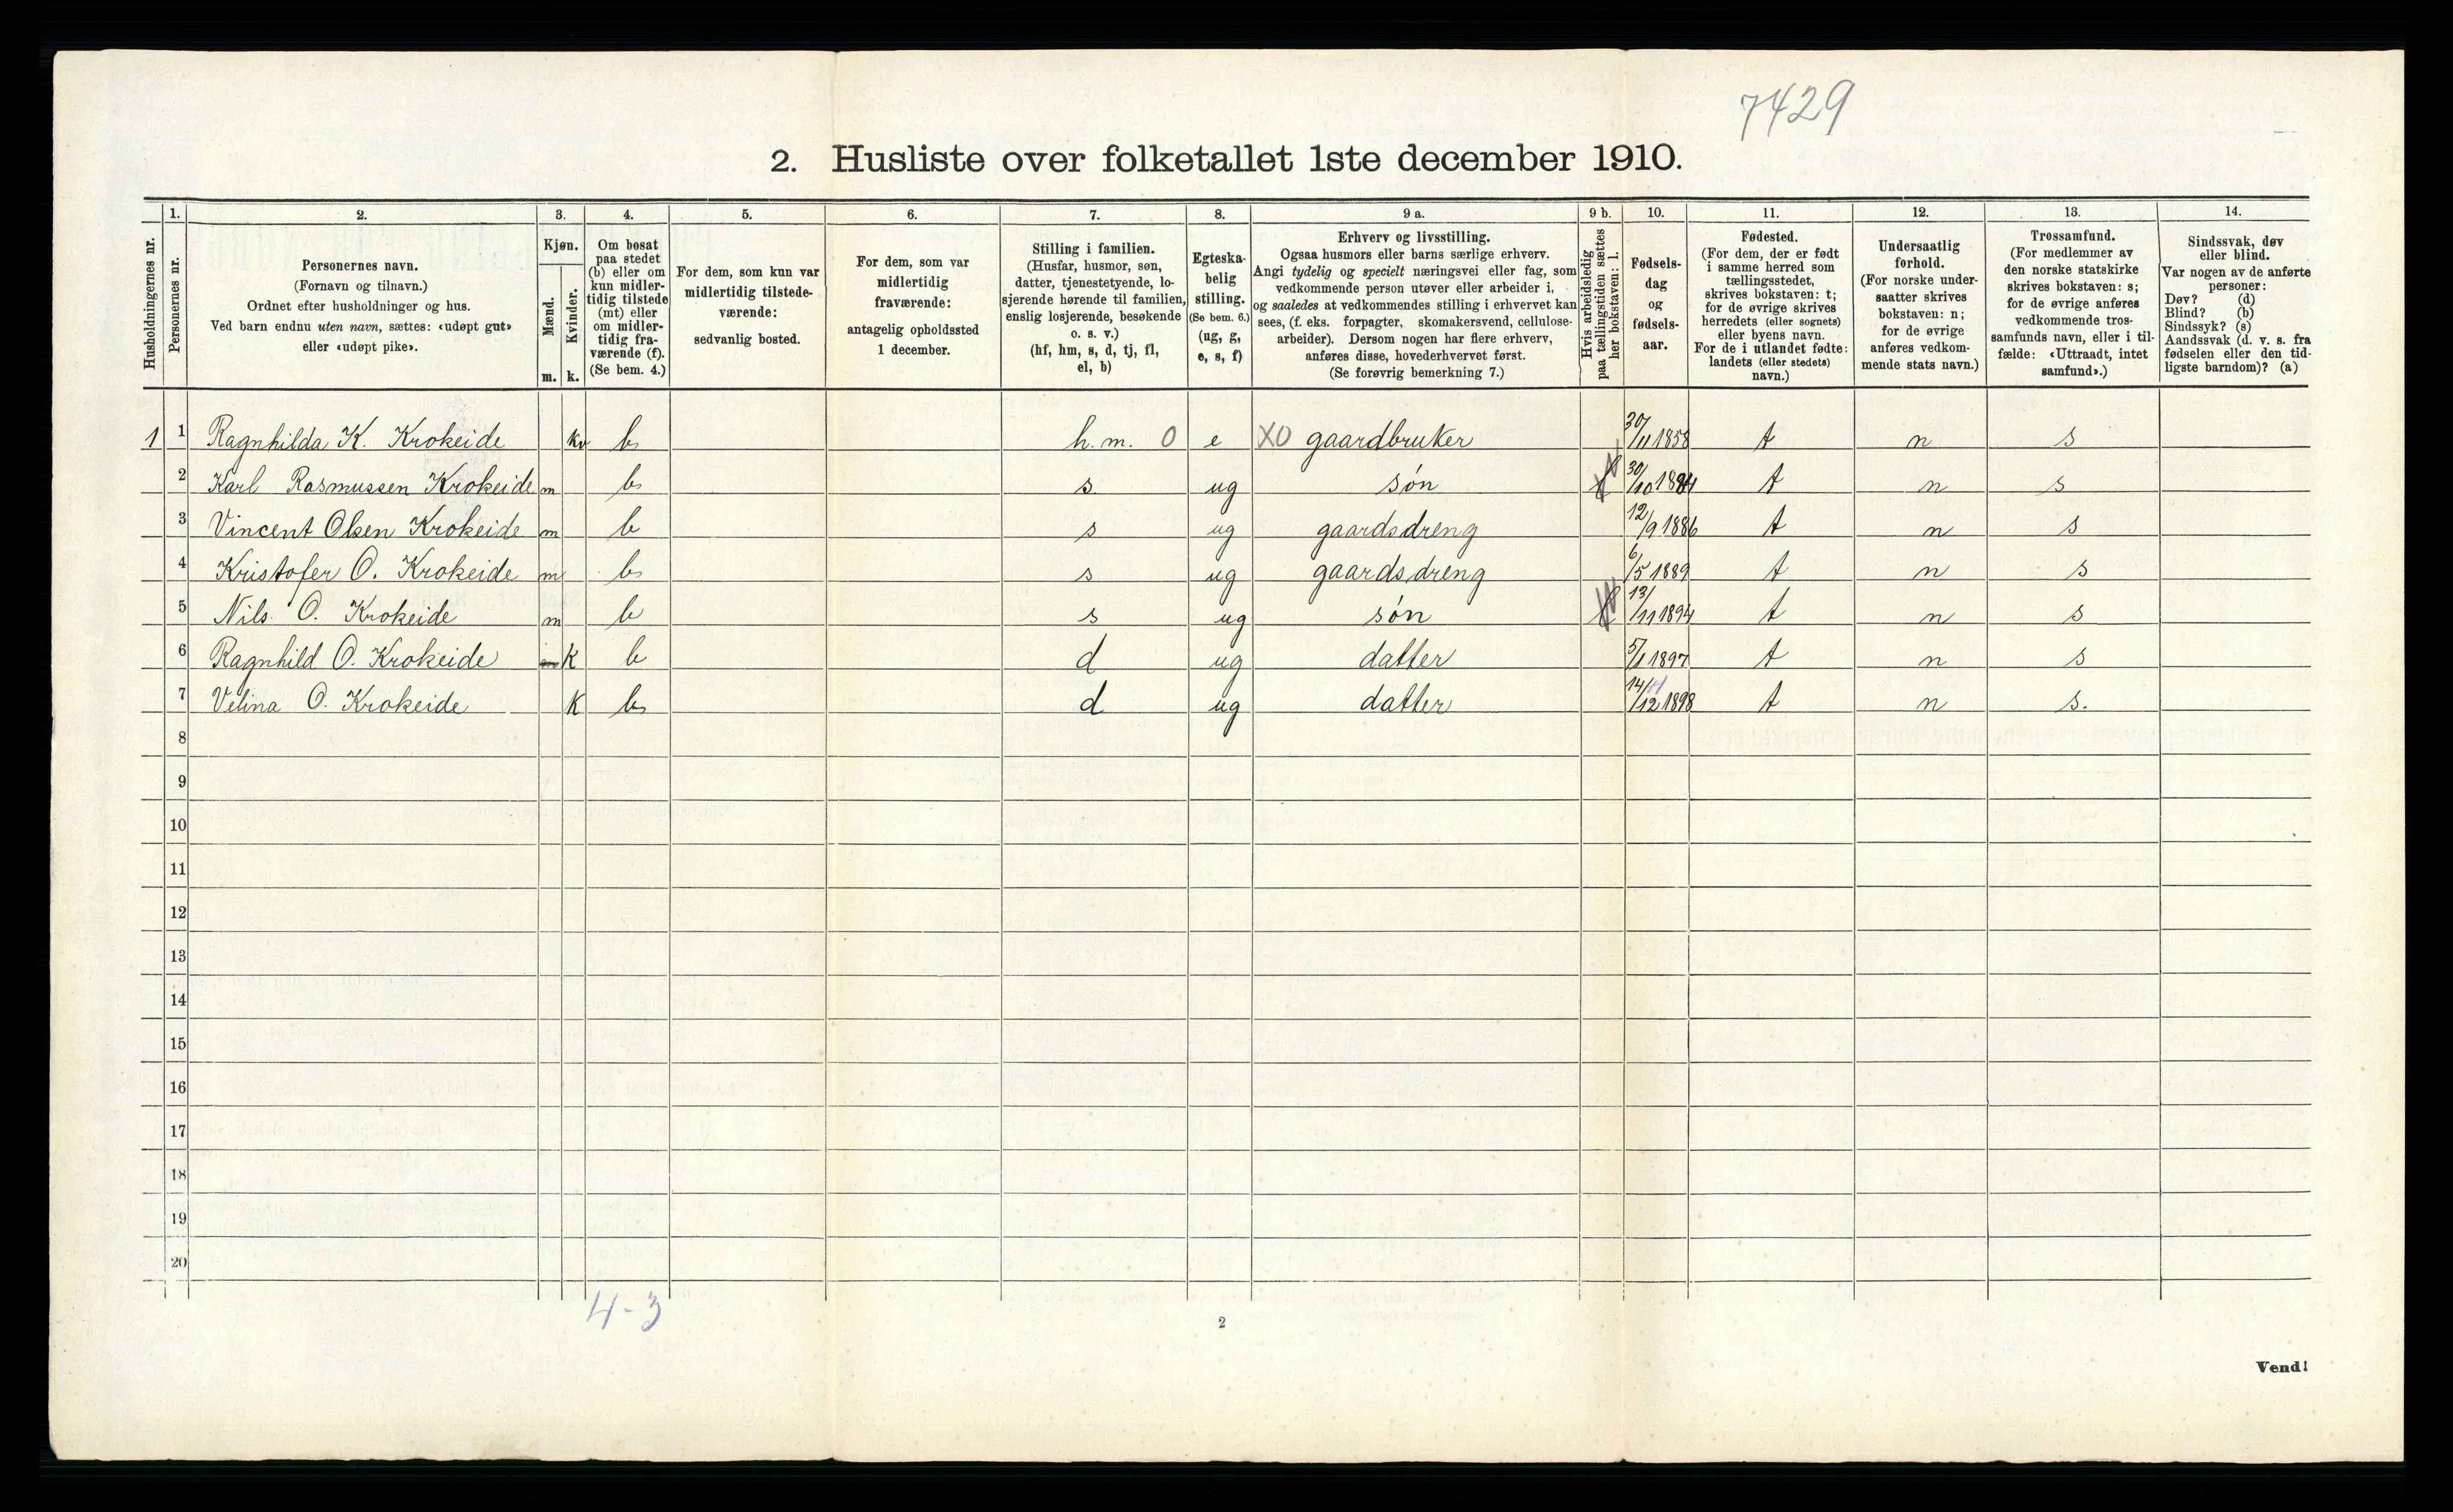 7429
2. Husliste over folketallet 1ste december 1910.
Husholdningernes nr.
1.
Personernes nr.
2.
Personernes navn.
(Fornavn og tilnavn.)
Ordnet efter husholdninger og hus.
Ved barn endnu uten navn, sættes: «udøpt gut»
eller «udøpt pike».
3.
Kjøn.
Mænd.
Kvinder.
m. k.
4.
Om bosat
paa stedet
(b) eller om
kun midler-
tidig tilstede
(mt) eller
om midler-
tidig fra-
værende (f).
(Se bem. 4.)
5.
For dem, som kun var
midlertidig tilstede-
værende:
sedvanlig bosted.
6.
For dem, som var
midlertidig
fraværende:
antagelig opholdssted
1 december.
7.
Stilling i familien.
(Husfar, husmor, søn,
datter, tjenestetyende, lo-
sjerende hørende til familien,
enslig losjerende, besøkende
o. s. v.)
(hf, hm, s, d, tj, fl,
el, b)
8.
Egteska-
belig
stilling.
(Se bem. 6.)
(ug, g,
e, s, f)
9 a.
Erhverv og livsstilling.
Ogsaa husmors eller barns særlige erhverv.
Angi tydelig og specielt næringsvei eller fag, som
vedkommende person utøver eller arbeider i,
og saaledes at vedkommendes stilling i erhvervet kan
sees, (f. eks. forpagter, skomakersvend, cellulose-
arbeider). Dersom nogen har flere erhverv,
anføres disse, hovederhvervet først.
(Se forøvrig bemerkning 7.)
9 b.
Hvis arbeidsledig
paa tællingstiden sættes
her bokstaven: l.
10.
Fødsels-
dag
og
fødsels-
aar.
11.
Fødested.
(For dem, der er født
i samme herred som
tællingsstedet,
skrives bokstaven: t;
for de øvrige skrives
herredets (eller sognets)
eller byens navn.
For de i utlandet fødte:
landets (eller stedets)
navn.)
12.
Undersaatlig
forhold.
(For norske under-
saatter skrives
bokstaven: n;
for de øvrige
anføres vedkom-
mende stats navn.)
13.
Trossamfund.
(For medlemmer av
den norske statskirke
skrives bokstaven: s;
for de øvrige anføres
vedkommende tros-
samfunds navn, eller i til-
fælde: «Uttraadt, intet
samfund».)
14.
Sindssvak, døv
eller blind.
Var nogen av de anførte
personer:
Døv? (d)
Blind? (b)
Sindssyk? (s)
Aandssvak (d. v. s. fra
fødselen eller den tid-
ligste barndom)? (a)
1 1 Ragnhilda K. Krokeide kv b h. m. 0 e X0 gaardbruker 30/11 1858 t n s
2 Karl Rasmussen Krokeide m b s ug søn 30/10 1884 t n s
3 Vincent Olsen Krokeide m b s ug gaardsdreng 12/9 1886 t n s
4 Kristofer O. Krokeide m b s ug gaardsdreng 6/5 1889 t n s
5 Nils O. Krokeide m b s ug søn 13/11 1894 t n s
6 Ragnhild O. Krokeide k b d ug datter 5/1 1897 t n s
7 Velina O. Krokeide k b d ug datter 14/12 1898 t n s.
8
9
10
11
12
13
14
15
16
17
18
19
20
4-3
2
Vend!